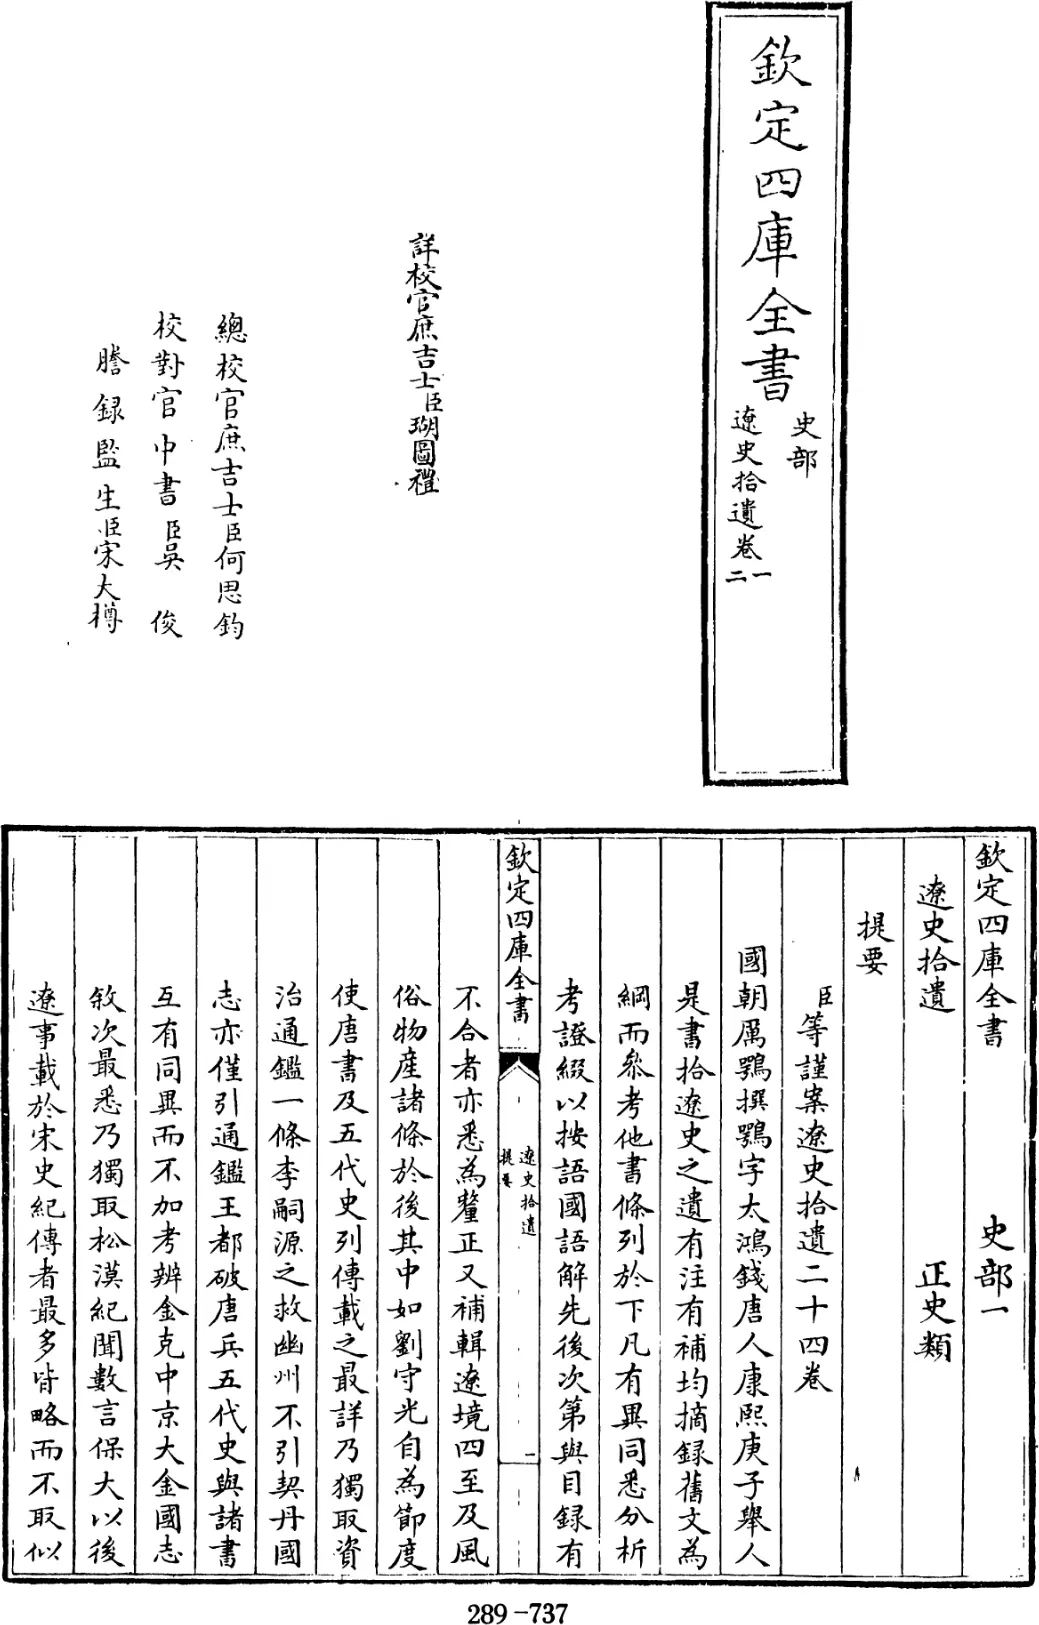 欽定四庫全書
史部
遼史拾遺卷一
二
詳校官庶吉士臣瑚圖禮
總校官庶吉士臣何思鈞
校對官中書臣吳俊
謄錄監生臣宋大樽
欽定四庫全書 史部一
遼史拾遺 正史類
提要
臣等謹案遼史拾遺二十四卷
國朝厲鶚撰鶚字太鴻錢唐人康熙庚子舉人
是書拾遼史之遺有注有補均摘録舊文為
綱而叅考他書條列於下凡有異同悉分析
考證綴以按語國語解先後次第與目録有
欽定四庫全書 遼史拾遺 提要 一
不合者亦悉為釐正又補輯遼境四至及風
俗物産諸條於後其中如劉守光自為節度
使唐書及五代史列傳載之最詳乃獨取資
治通鑑一條李嗣源之救幽州不引契丹國
志亦僅引通鑑王都破唐兵五代史與諸書
互有同異而不加考辨金克中京大金國志
敘次最悉乃獨取松漠紀聞數言保大以後
遼事載於宋史紀傳者最多皆略而不取似
289-737